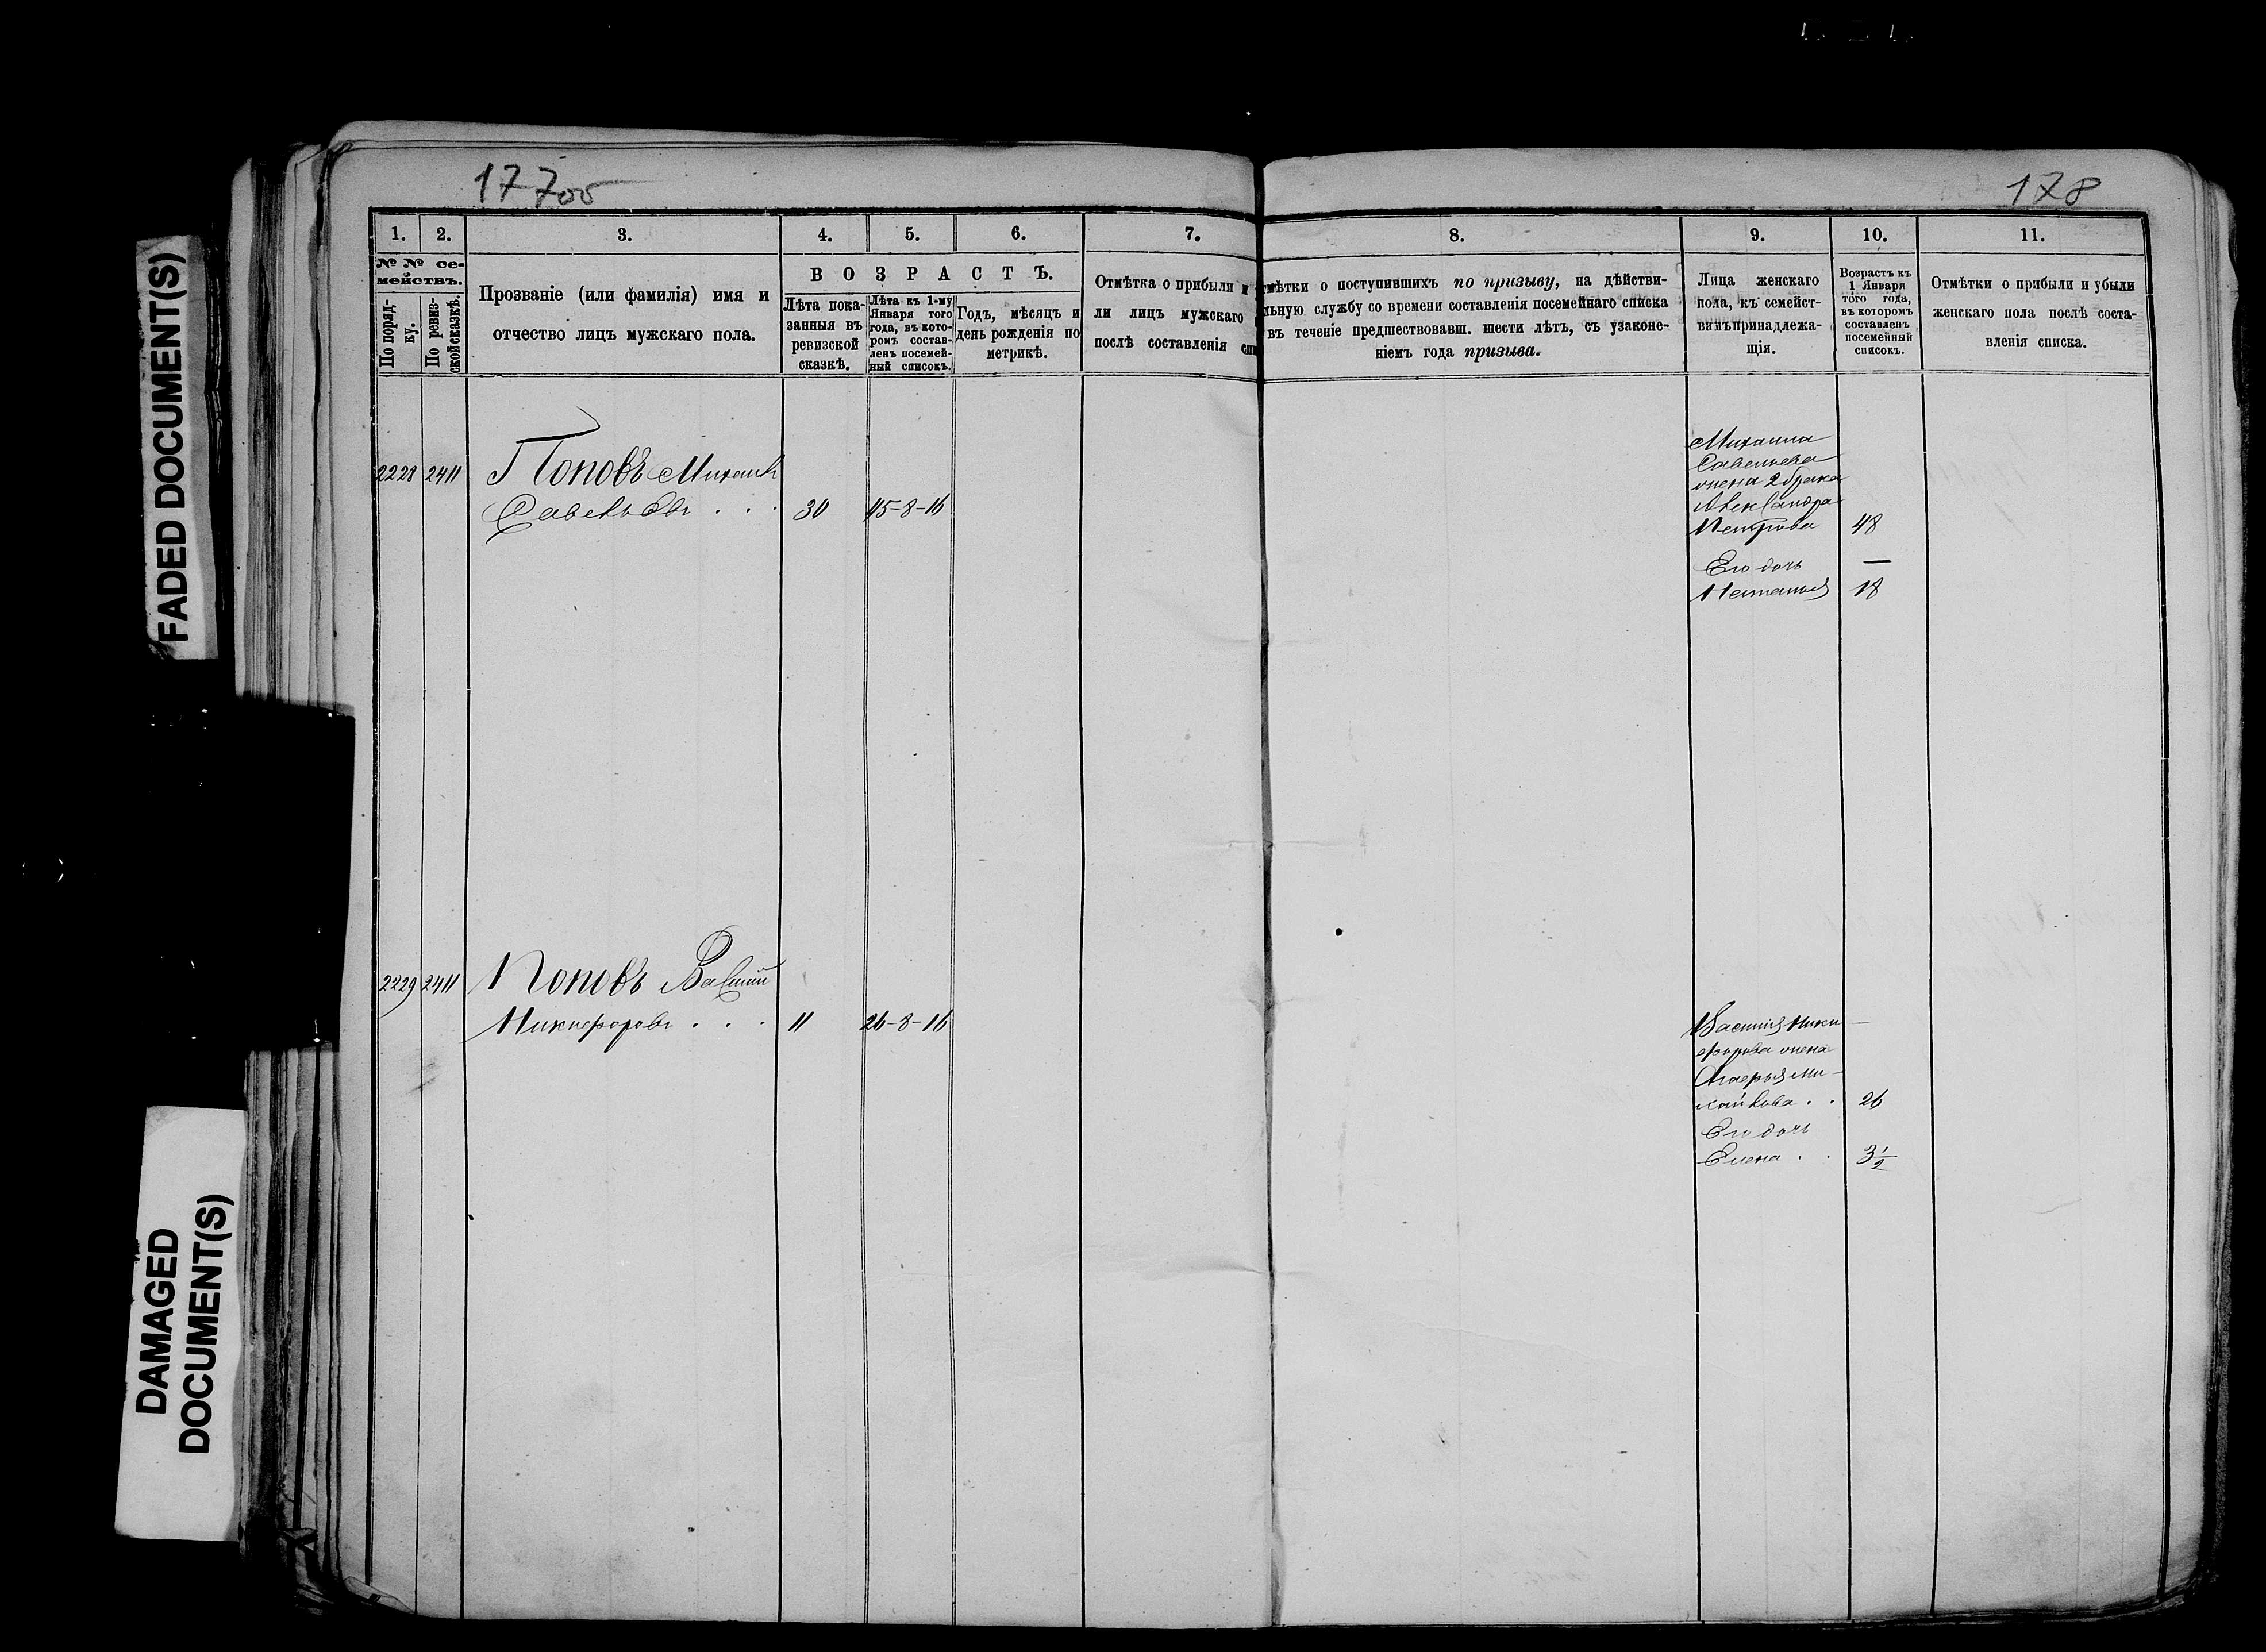 177об
178
FADED DOCUMENT(S)
DAMAGED
DOCUMENT(S)
1.
2.
3.
4.
5.
6.
7.
8.
9.
10.
11.
№ № се-
мействъ.
По поряд-
ку.
По ревиз-
ской сказкѣ.
Прозваніе (или фамилія) имя и
отчество лицъ мужскаго пола.
ВОЗРАСТЪ.
Лѣта пока-
занныя въ
ревизской
сказкѣ.
Лѣта къ 1-му
Января того
года, въ кото-
ромъ состав-
ленъ посемей-
ный списокъ.
Годъ, мѣсяцъ и
день рожденія по
метрикѣ.
Отмѣтка о прибыли и
ли лицъ мужскаго
послѣ составленія спи
тмѣтки о поступившихъ по призыву, на дѣйстви-
льную службу со времени составленія посемейнаго списка
въ теченіе предшествовавш. шести лѣтъ, съ узаконе-
ніемъ года призыва.
Лица женскаго
пола, къ семейст-
вимъ принадлежа-
щія.
Возрастъ къ
1 Января
того года,
въ которомъ
составленъ
посемейный
списокъ.
Отмѣтки о прибыли и убыли
женскаго пола послѣ соста-
вленія списка.
2228 2411 Поповъ Михаилъ
Савельевъ . . . 30 45-8-16
Михаила
Савельева
жена 2 брака
Александра
Петрова 48
Его дочь —
Наталья 18
2229 2411 Поповъ Василій
Никифоровъ . . . 11 26-8-16
Василія Ники-
форова жена
Марья Ми-
хайлова . . 26
Его дочь
Елена . . 3½